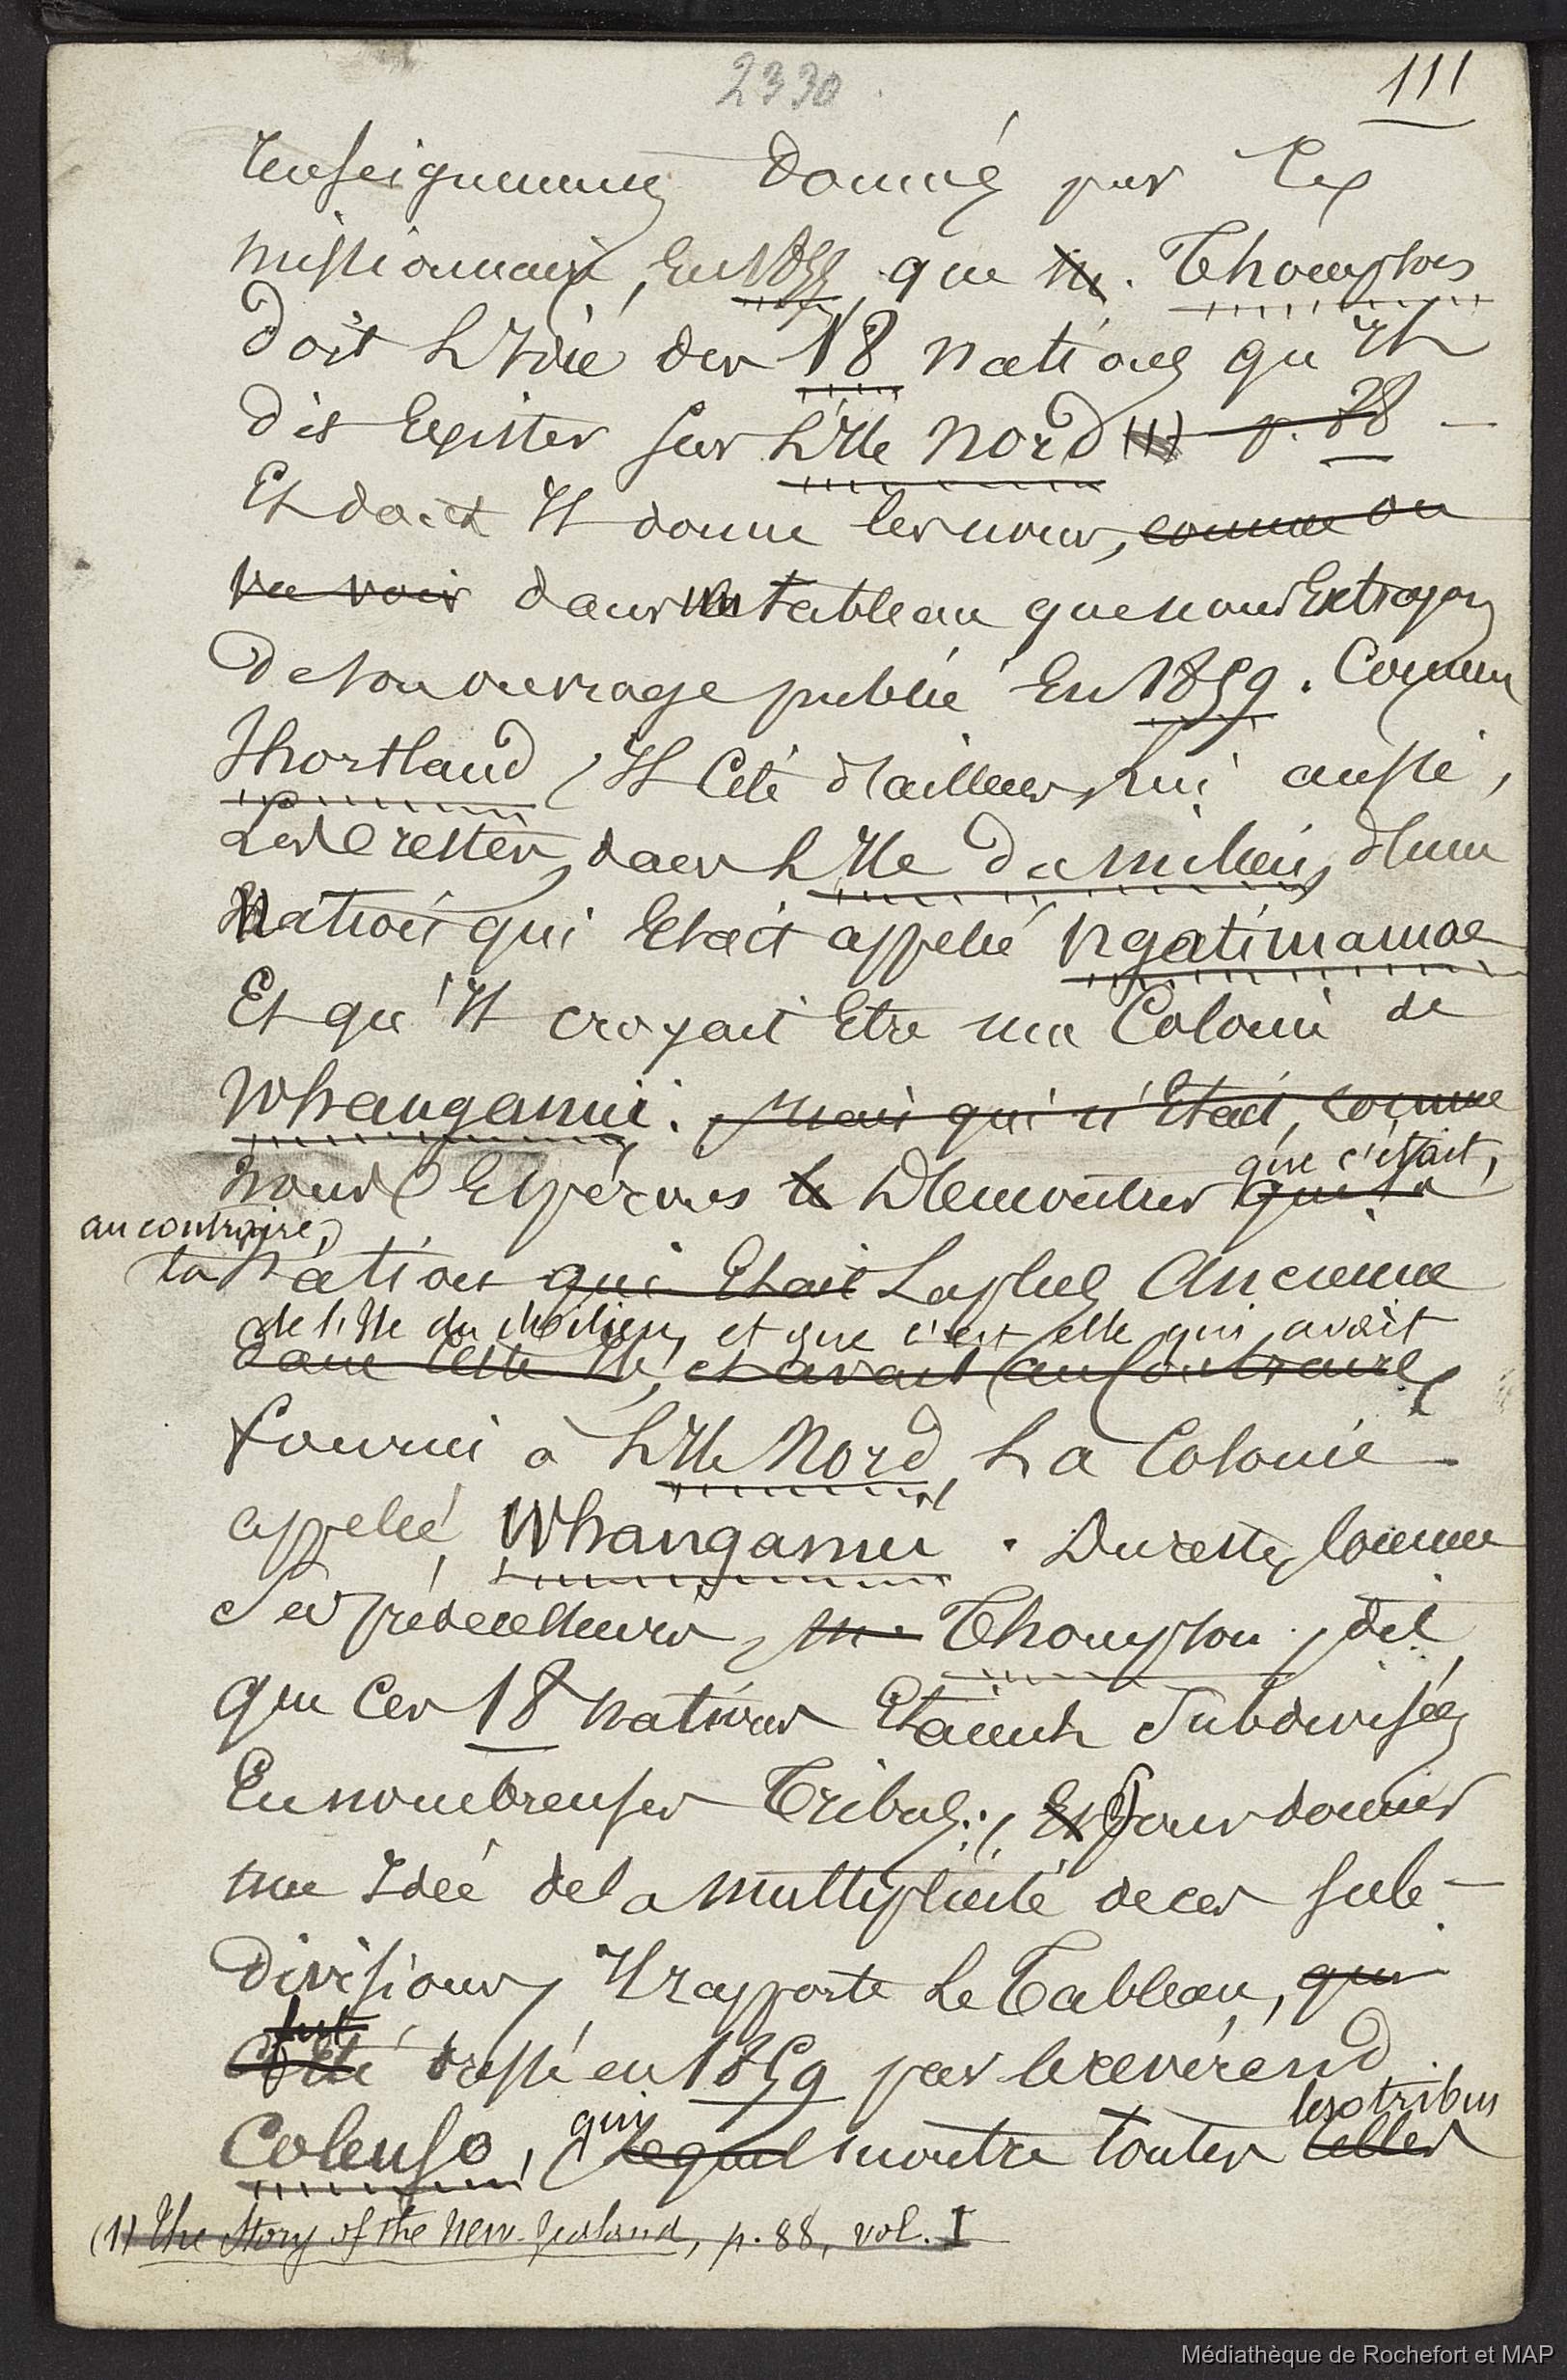 2330.
111
renseignements donnés par les
missionnaires, en que M. Thompson
doit l'idée des 18 nations qu'il
dit exister sur l'Ile Nord (1) p. 88 –
Et dont Il donne les noms, comme on
va voir dans un tableau que nous Extrayons
de son ouvrage publié En 1859. Comme
Shortland, Il Cite d'ailleurs, lui aussi,
Les restes, dans L'Ile du milieu, d'une
Nation qui Etait appelée Ngatimamoe
Et qu'Il croyait Etre une Colonie de
Whanganui. Mais qui n'Etait, comme
Nous Espérons le Démontrer que c'était,
au contraire,
la Nation qui Etait La plus Ancienne
de l'Ile du Milieu, et que c'est elle qui avait
dans cette Ile, et avait au Contraire,
fourni à L'Ile Nord, La Colonie
appelée Whanganui. Du reste, Comme
Ses prédécesseurs, M. Thompson, dit
que Ces 18 nations Etaient Subdivisées
En nombreuses Tribus; Et Pour donner
une Idée de la multiplicité de ces sub-
divisions, Il rapporte Le Tableau, qui
fut
a Eté dressé en 1859 par le révérend
les tribus
Colenso, qui lequel montre toutes celles
(1) The Story of the New-Zealand, p. 88, vol. I
Médiathèque de Rochefort et MAP